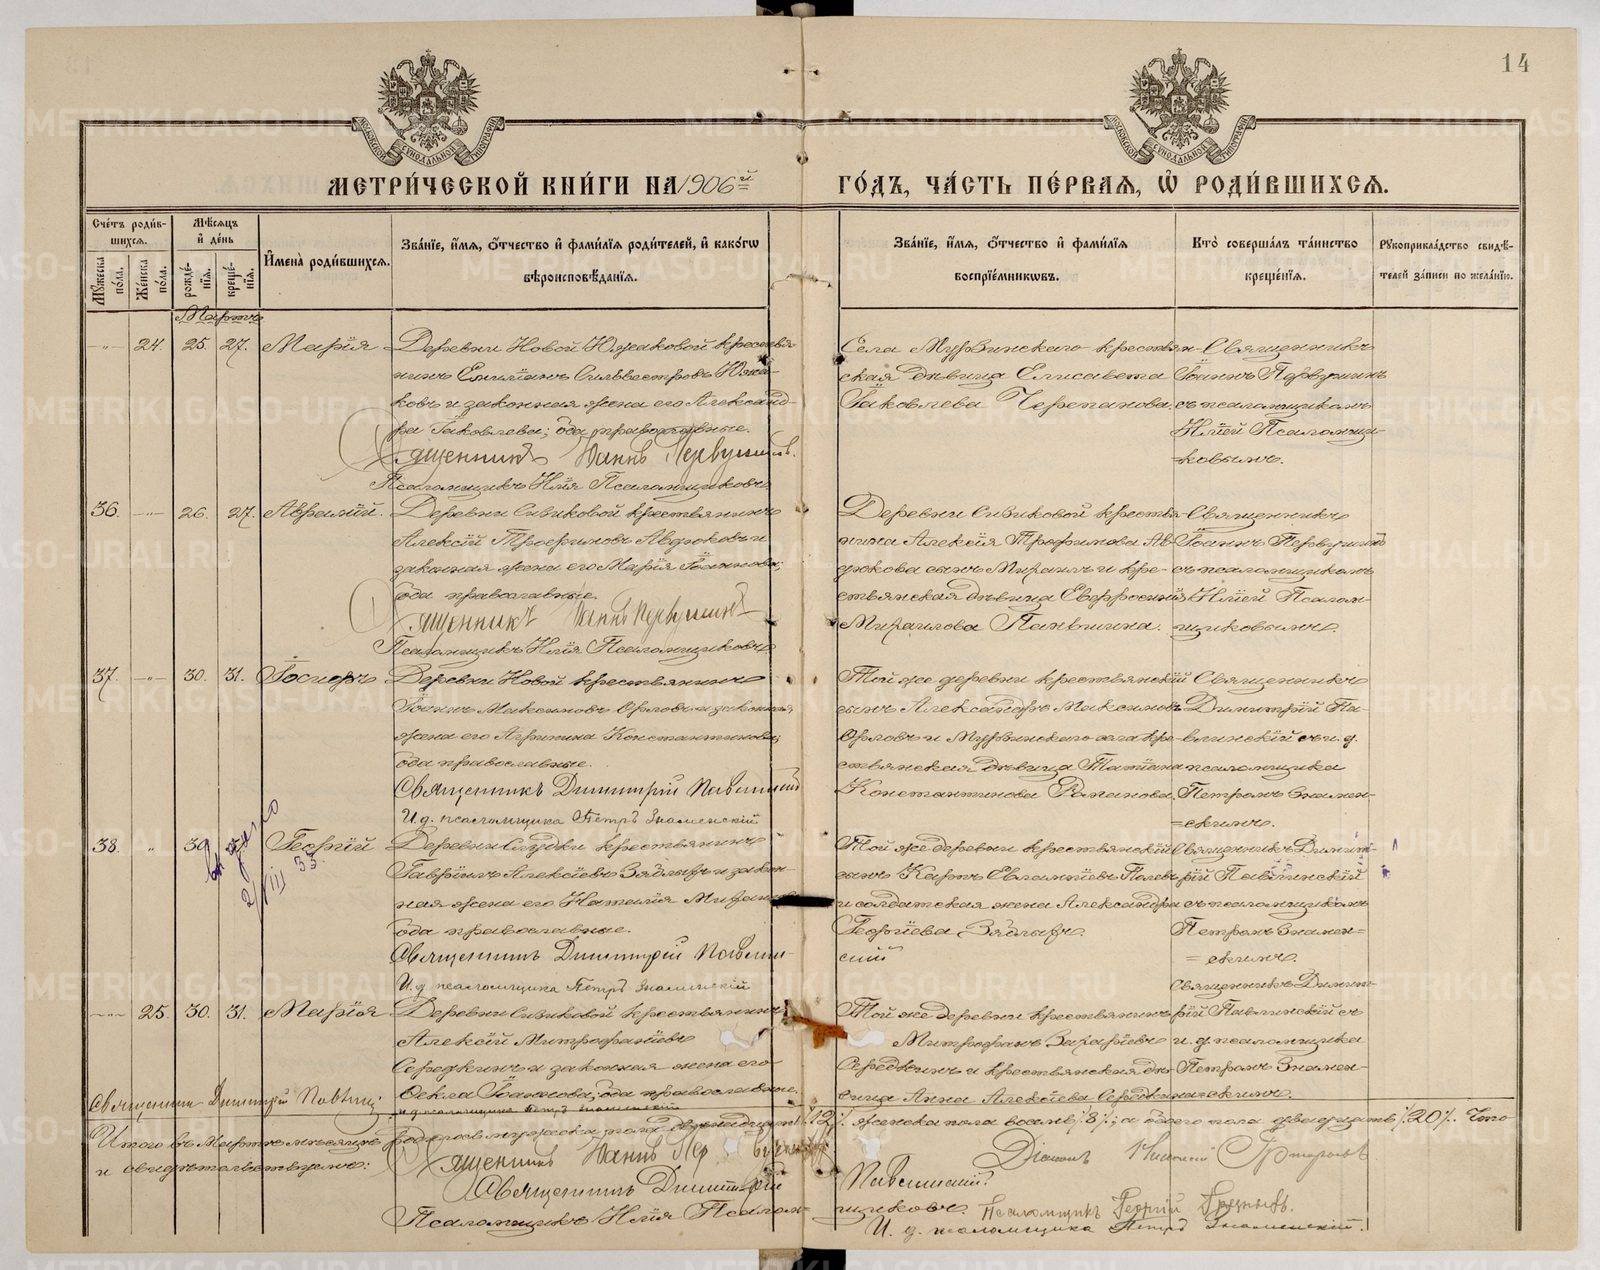 14
МЕТРИ́ЧЕСКОЙ КНИ́ГИ НА 1906й ГО́ДЪ, ЧА́СТЬ ПЕ́РВАЯ, Ѡ РОДИ́ВШИХСЯ.
Сче́тъ роди́в-
шихся.
Мѣ́сяцъ
и҆ де́нь
Мꙋ́жеска по́ла.
Же́нска по́ла.
рожде́-нїѧ.
креще́-нїѧ.
И҆мена̀ роди́вшихся.
Зва́нїе, и҆́мя, ѻ҆́тчество и҆ фами́лїя роди́телей, и҆ како́гѡ
вѣроисповѣ́данїя.
Зва́нїе, и҆́мя, ѻ҆́тчество и҆ фами́лїя
воспрїе́мникѡвъ.
Кто̀ соверша́лъ та́инство
креще́нїя.
Рꙋкоприкла́дство свидѣ́-
телей за́писи по жела́нїю.
Мартъ
24. 25. 27. Марія
Деревни Новой Южаковой крестья-
нинъ Емиліанъ Сильвестровъ Южа-
ковъ и законная жена его Александ-
ра Іаковлева; оба православные.
Священникъ Іоаннъ Первушинъ.
Псаломщикъ Илія Псаломщиковъ
Села Мурзинскаго крестьян-
ская дѣвица Елисавета
Іаковлева Черепанова.
Священникъ
Іоаннъ Первушинъ
съ псаломщикомъ
Иліей Псаломщи-
ковымъ.
36. 26. 27. Аврамій.
Деревни Сизиковой крестьянинъ
Алексій Трофимовъ Авдюковъ и
законная жена его Марія Іоаннова;
оба православные.
Священникъ Іоаннъ Первушинъ
Псаломщикъ Илія Псаломщиковъ
Деревни Сизиковой крестья-
нина Алексія Трофимова Ав-
дюкова сынъ Михаилъ и кре-
стьянская дѣвица Евфросинія
Михаилова Паньшина.
Священникъ
Іоаннъ Первушинъ
съ псаломщикомъ
Иліей Псалом-
щиковымъ.
37. 30. 31. Іосифъ
Деревни Новой крестьянинъ
Іоаннъ Максимовъ Орловъ и законная
жена его Агрипина Константинова;
оба православные.
Священникъ Димитрій Павлинскій
И.д. псаломщика Петръ Знаменскій
Той же деревни крестьянскій
сынъ Александръ Максимовъ
Орловъ и Мурзинскаго села кре-
стьянская дѣвица Татіана
Константинова Романова.
Священникъ
Димитрій Па-
влинскій съ и. д.
псаломщика
Петромъ Знамен-
скимъ.
38. 30. Георгій
Деревни Слудки крестьянинъ
Гавріилъ Алексіевъ Зяблывъ и закон-
ная жена его Наталія
оба православные.
Священникъ Димитрій Павлин-
скій
И.д. псаломщика Петръ Знаменскій
Той же деревни крестьянскій
сынъ Карпъ Евлампіевъ
и солдатская жена Александра
Георгіева
Священникъ Димит-
рій Павлинскій
съ псаломщикомъ
Петромъ Знамен-
скимъ.
25. 30. 31. Марія
Деревни Сизиковой крестьянинъ
Алексій Митрофаніевъ
Середкинъ и законная жена его
Ѳекла Іоаннова; оба православные.
И.д. псаломщика Петръ Знаменскій
Священникъ Димитрій Павлинс.
Той же деревни крестьянинъ
Митрофанъ Захаріевъ
Середкинъ и крестьянская дѣ-
вица Анна Алексіева Середкина
Священникъ Димит-
рій Павлинскій съ
и. д. псаломщика
Петромъ Знамен-
скимъ.
Итого въ Мартѣ мѣсяцѣ родилось мужска пола двѣнадцать /12/. женска пола восемь /8/; а обоего пола двадцать /20/. Что
и свидѣтельствуемъ:
Священникъ Іоаннъ Первушинъ
Діаконъ
Священникъ Димитрій Павлинскій
Псаломщикъ Илія Псаломщиковъ.
Псаломщикъ Георгій
И. д. псаломщика Петръ Знаменскій.